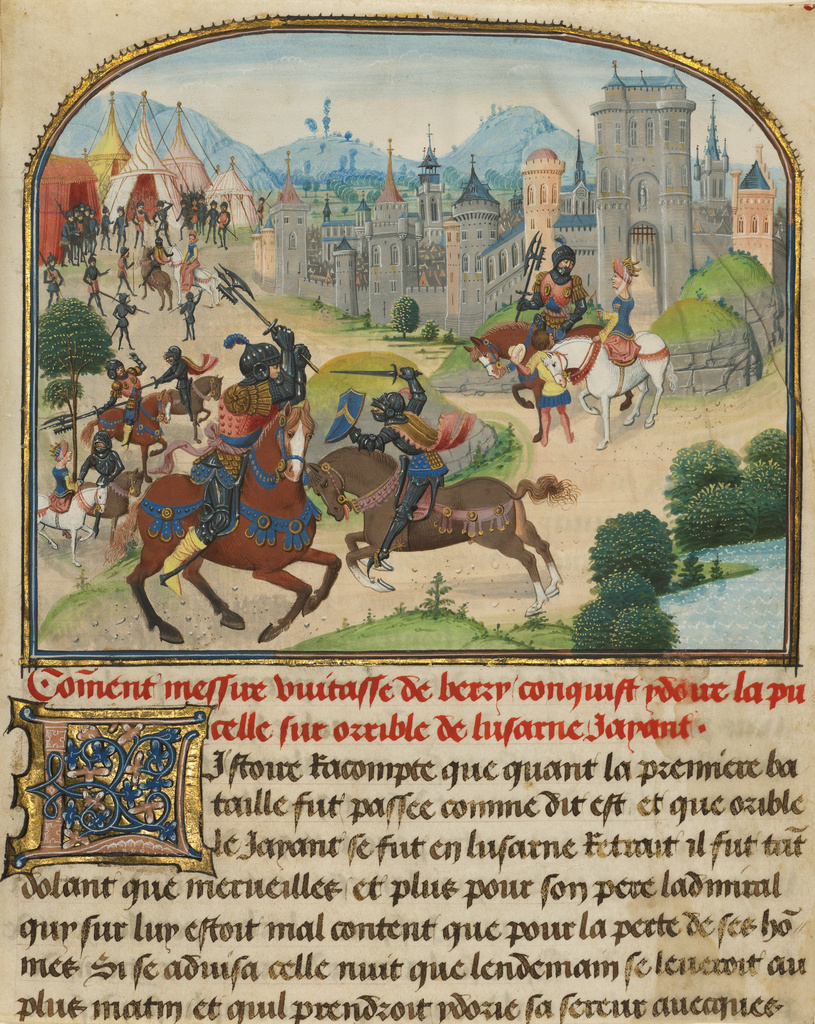 Com̄ent messire vuitasse de berry conquist ydorie la pu
celle sur orrible de lusarne Jayant.
LJstoire Racompte que quant la premiere ba
taille fut passee comme dit est et que orible
le Jayant se fut en lusarne Retrait il fut tāt
dolant que merueilles et plus pour son pere ladmiral
quy sur luy estoit mal content que pour la perte de ses hō
mes Si se aduisa celle nuit que lendemain se leueroit au
plus matin et quil prendroit ydorie sa sereur auecques